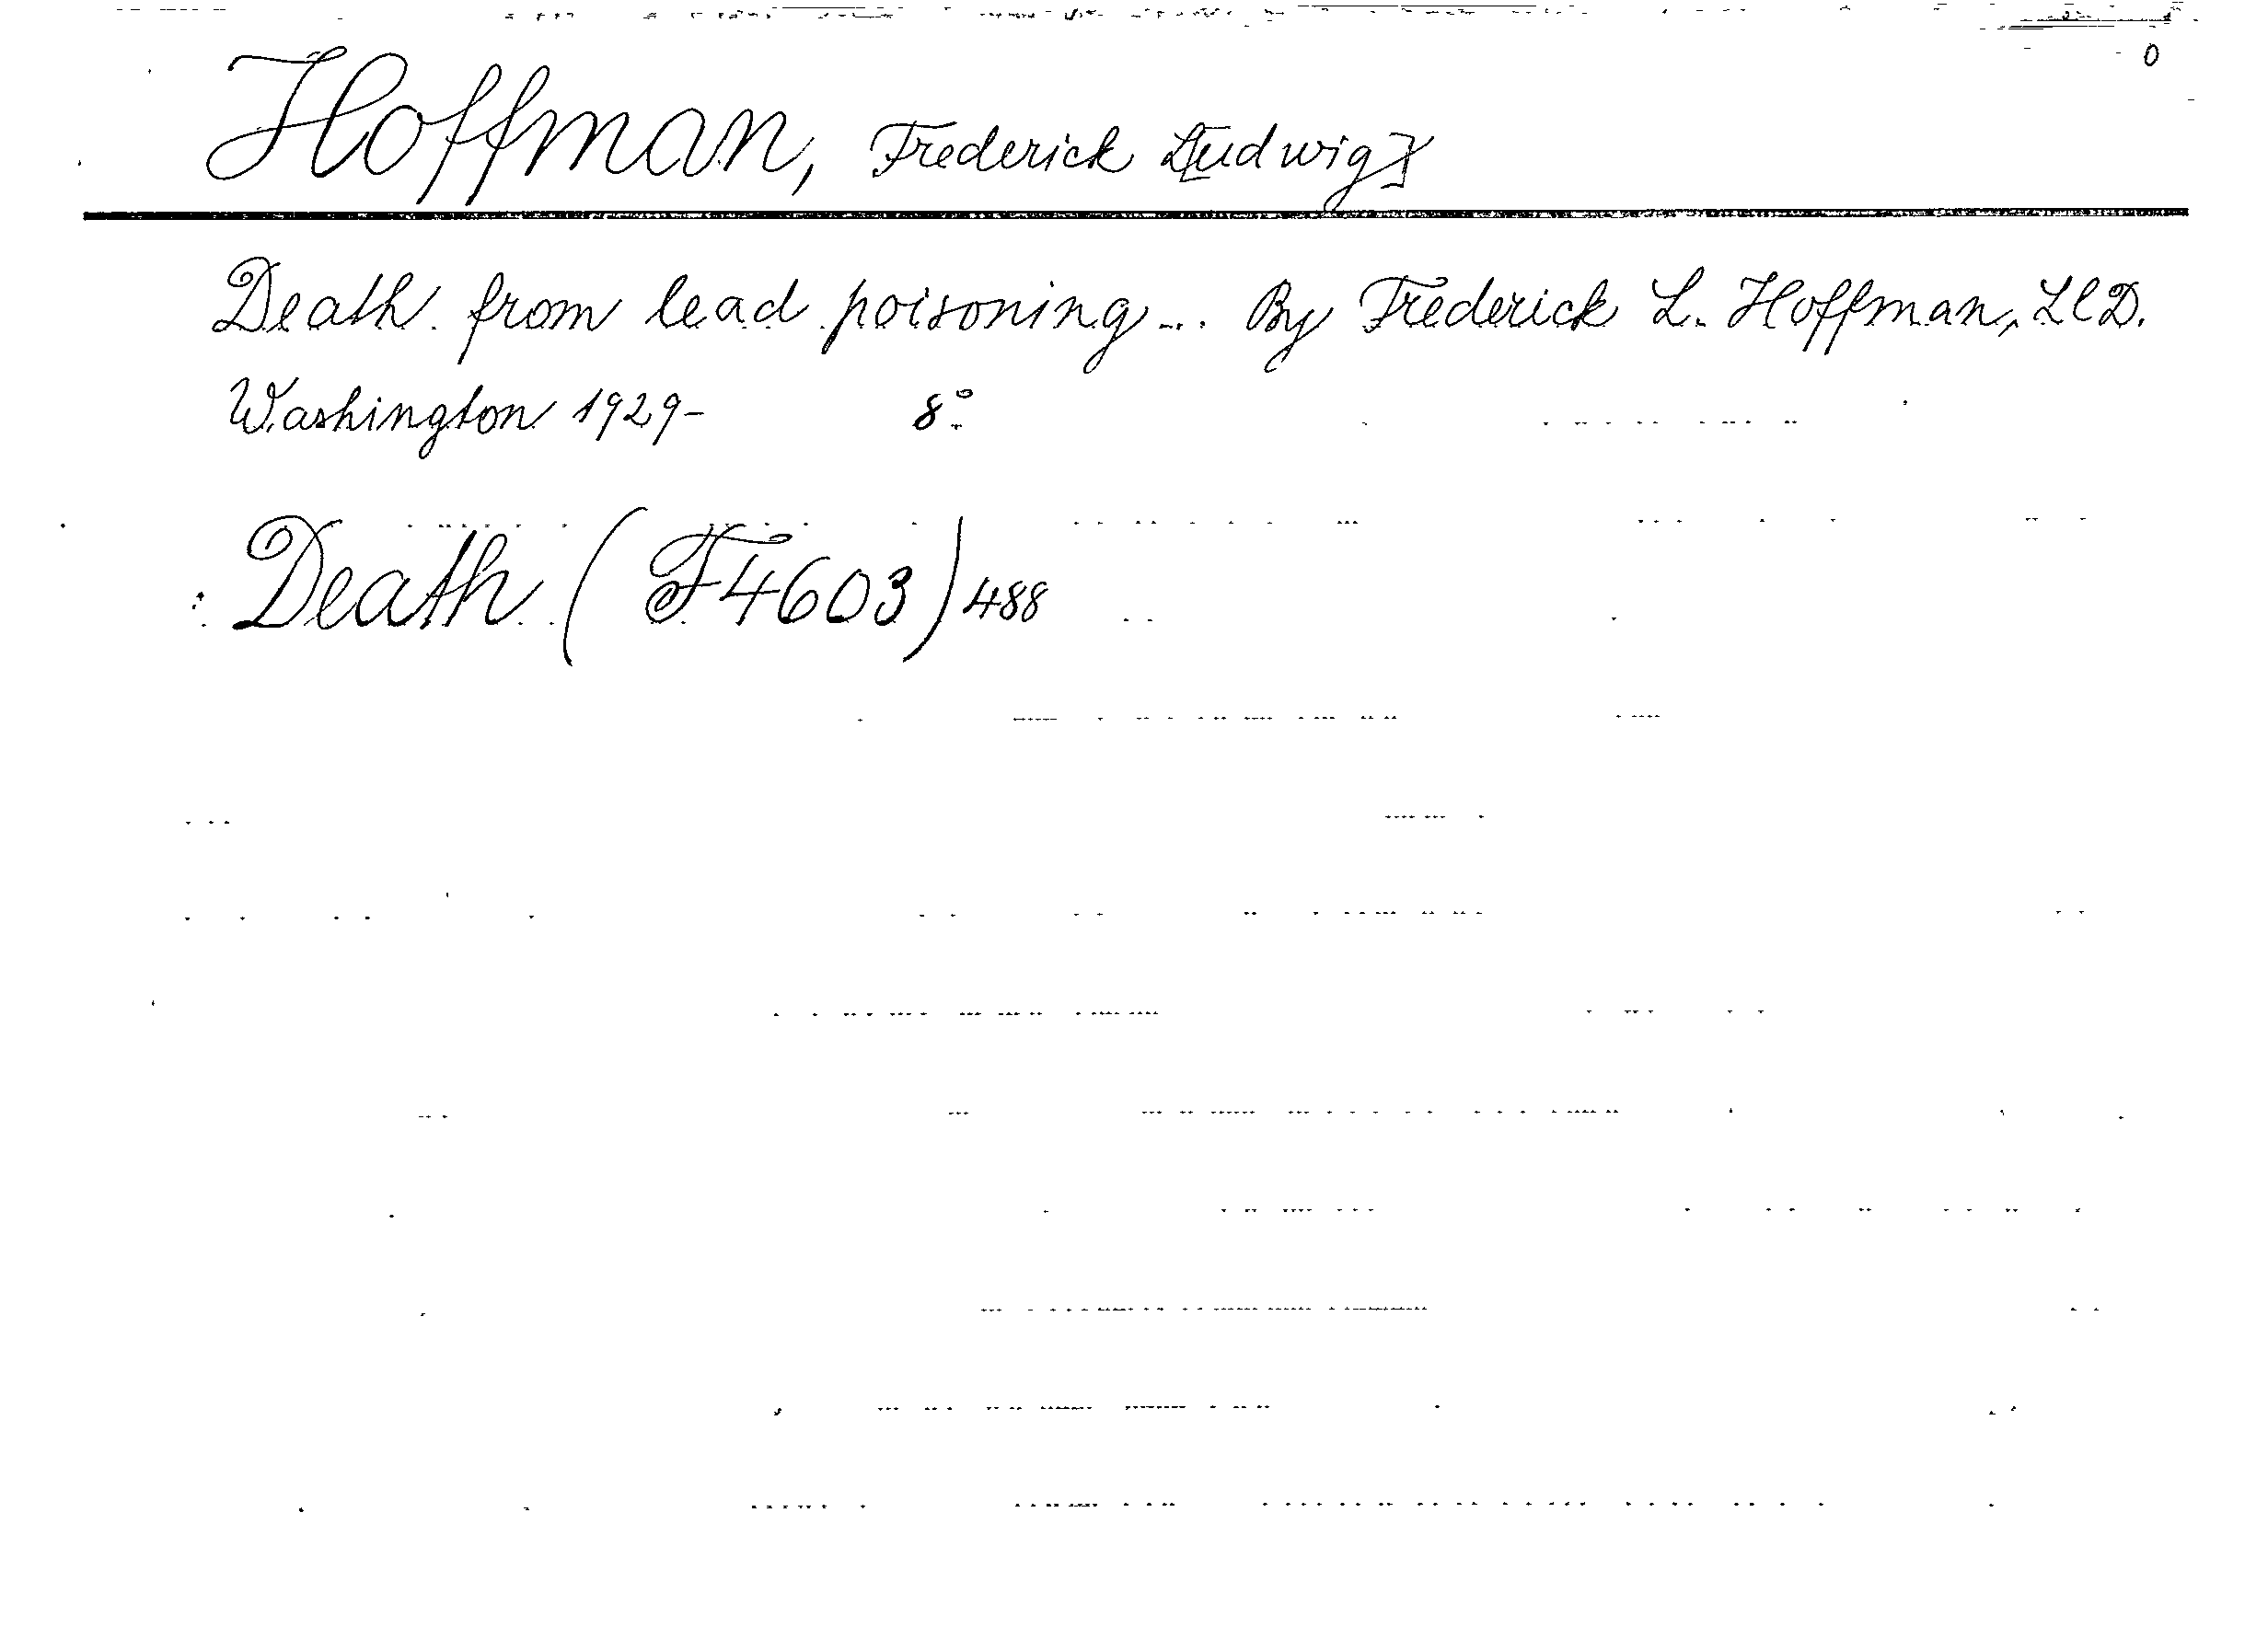 0
Hoffman, Frederick L[udwig]
Death from lead poisoning... By Frederick L. Hoffman, LlD.
Washington 1929- 8°
Death (F4603) 488